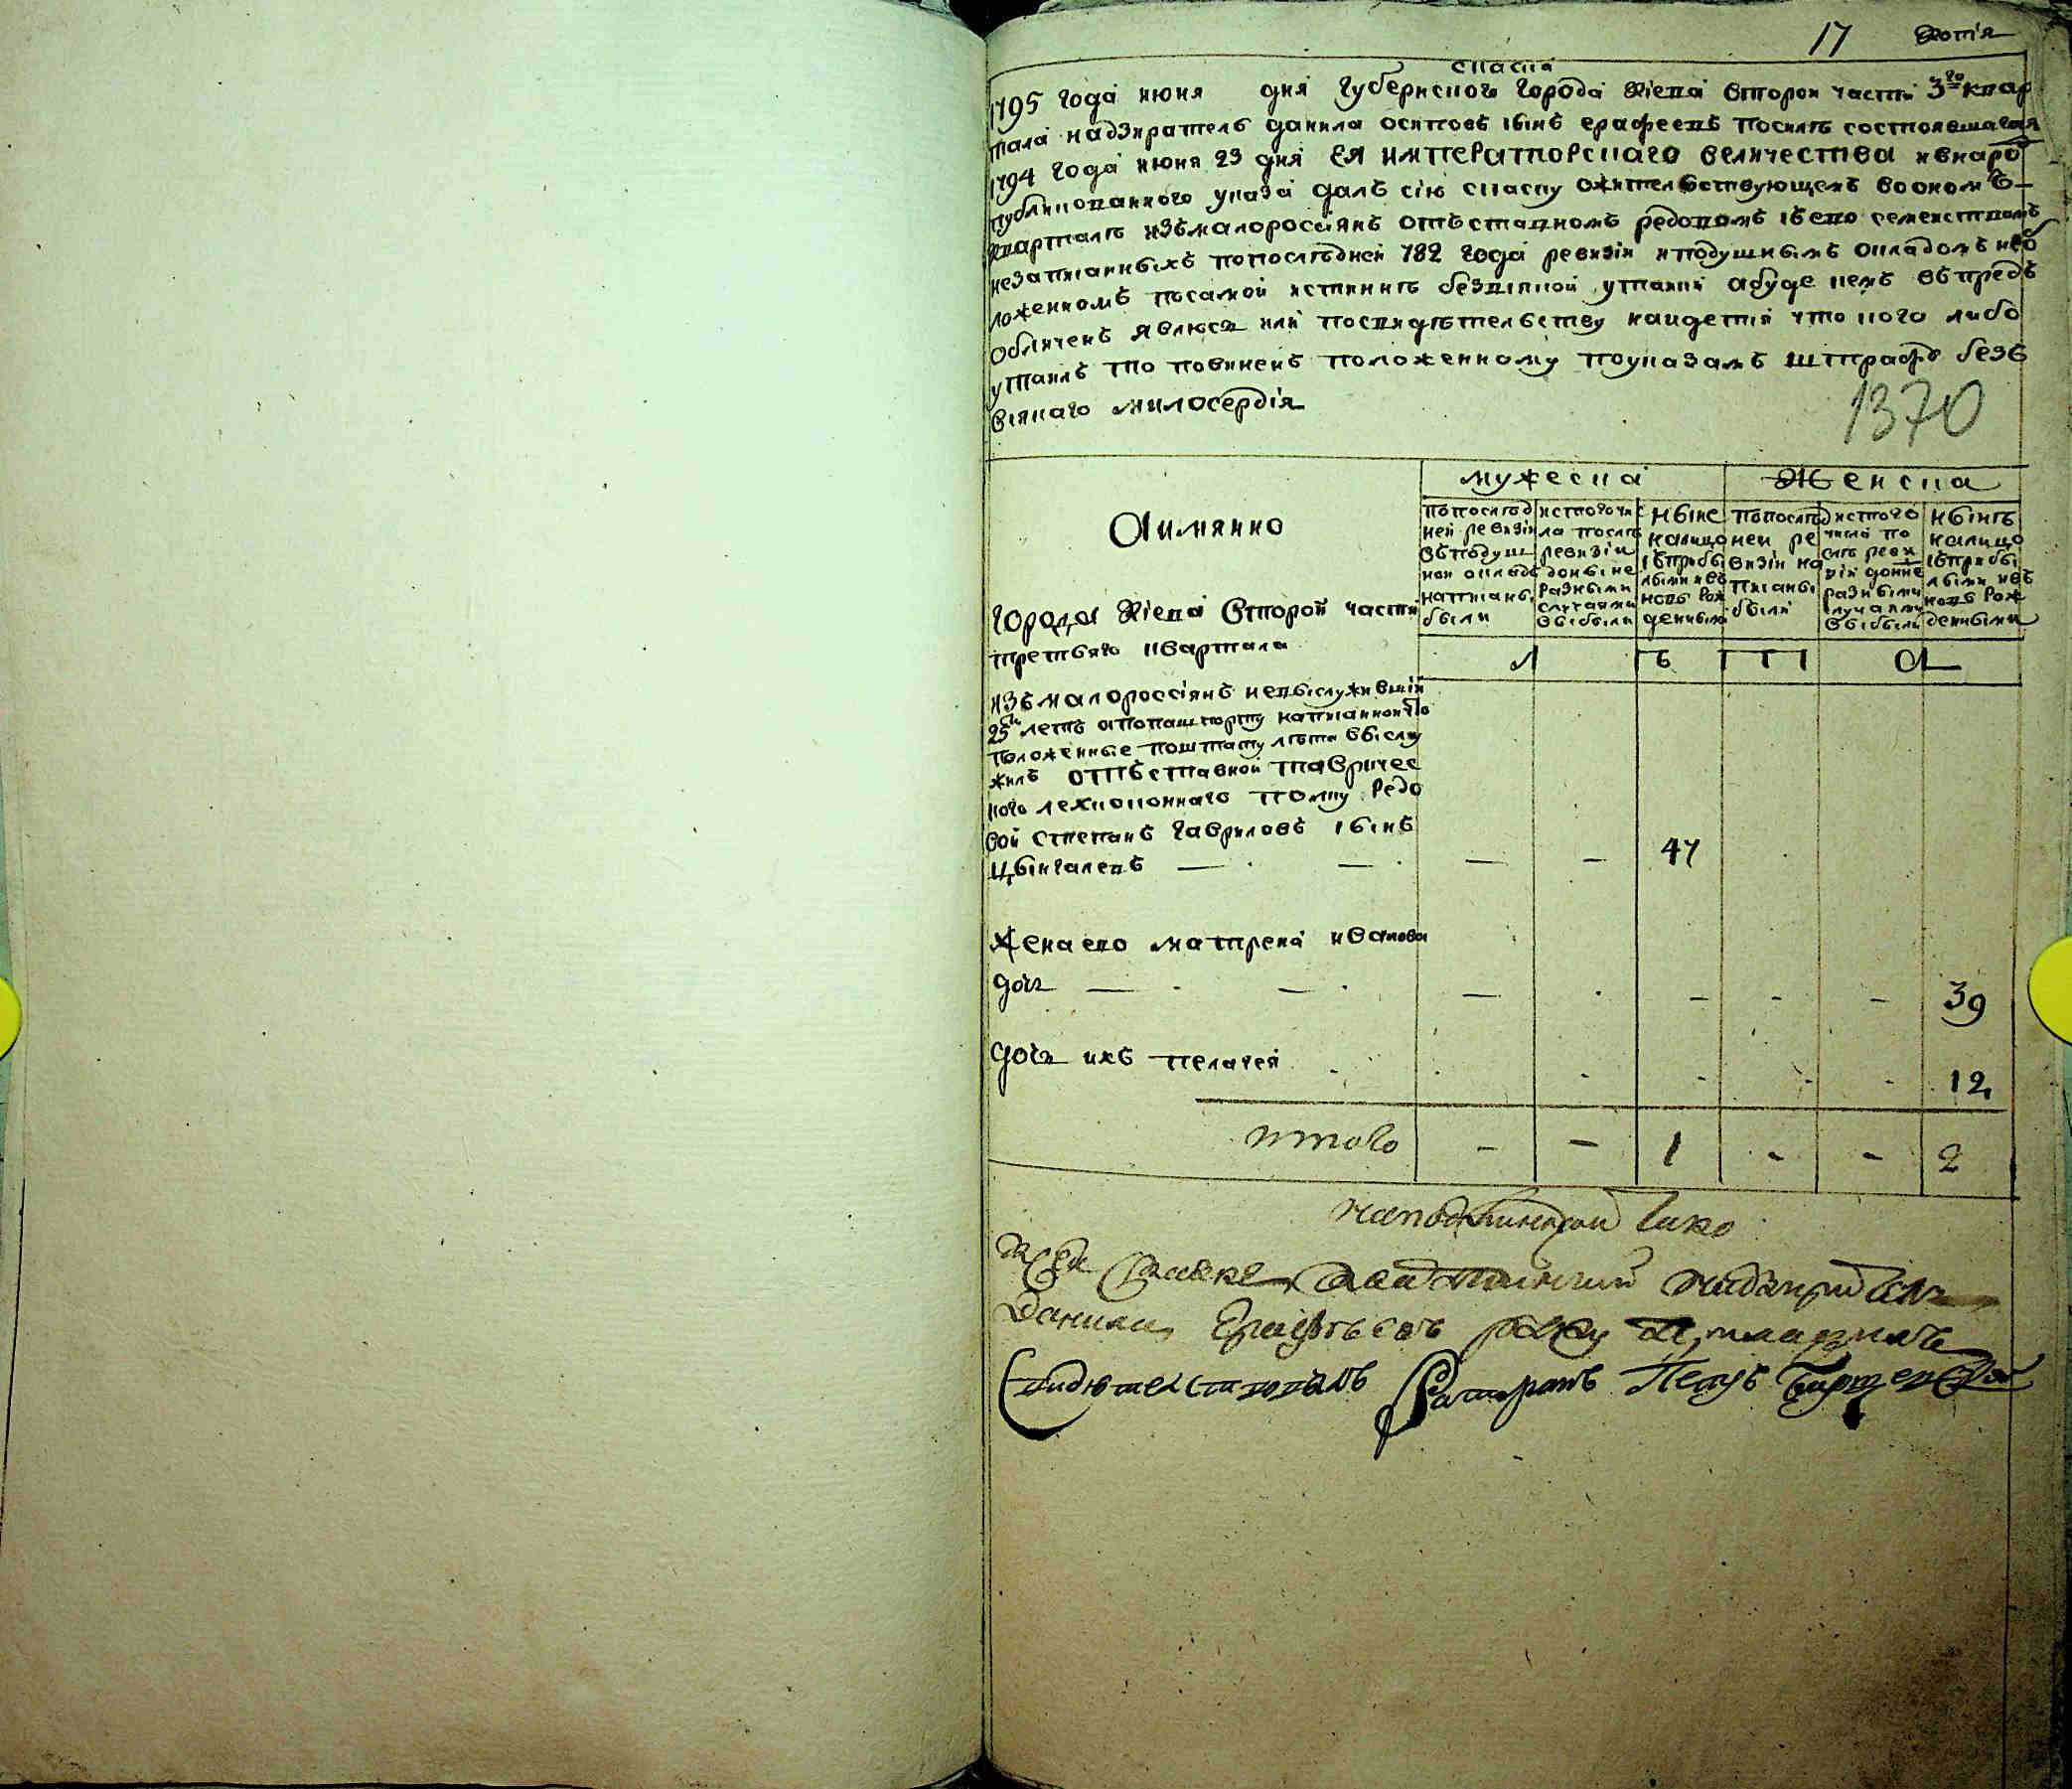 17 Копія
сказка
1795 года июня дня губернского города Киева второй части 3го квар
тала надзиратель данила осиповъ сынъ ерафеевъ посилѣ состоявшагося
1794 года июня 23 дня ЕЯ ИМПЕРАТОРСКАГО величества ивнарод
публикованного указа далъ сію скаску ожительствующемъ вооном
квартале изъмалороссіянъ отъставномъ редовомъ сего семействомъ
незаписанныхъ попослѣдней 782 года ревизіи иподушнымъ окладомъ необ
ложенномъ посамой истиннѣ безвсякой утайки абуде кемъ въпредь
обличенъ явлюся или посвидѣтельству найдется что кого либо
утаилъ то повиненъ положенному поуказамъ штрафу безъ
всякаго милосердія
1370
мужеска Женска
Аимянно
попослѣд ней ревизіи въподуш ном окладе написаны были
истогочис ла послѣ ревизіи доныне разными случаями выбыли
Ныне налицо съприбы лыми новь рож денными
Попослѣд ней ре визіи на писаны были
истого числа по слѣ реви зіи доныне разными случаями выбыли
Нынѣ налицо съприбы лыми новь рож денными
города Киева Второй части
третьяго квартала
изъмалороссіянъ невыслужившій
25ти летъ апопашпорту написанном что
положенные поштату лѣта выслу
жилъ отъставной тавричес
кого полку редо
вой степанъ гавриловъ сынъ
Цынгалевъ — — — — 47
Жена ево матрена иванова
дочь — — — — — — 39
дочь ихъ пелагея 12
итого — — 1 — — 2
наподлинной тако
Ксей скаске надзиратель
Данила Ерафѣевъ руку приложилъ
Свидѣтельствовалъ Ратманъ Петръ